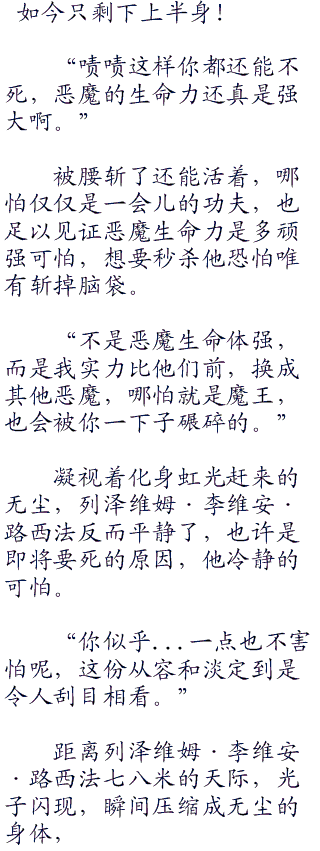 如今只剩下上半身！
“啧啧这样你都还能不
死，恶魔的生命力还真是强
大啊。”
被腰斩了还能活着，哪
怕仅仅是一会儿的功夫，也
足以见证恶魔生命力是多顽
强可怕，想要秒杀他恐怕唯
有斩掉脑袋。
“不是恶魔生命体强，
而是我实力比他们前，换成
其他恶魔，哪怕就是魔王，
也会被你一下子碾碎的。”
凝视着化身虹光赶来的
无尘，列泽维姆·李维安·
路西法反而平静了，也许是
即将要死的原因，他冷静的
可怕。
“你似乎...一点也不害
怕呢，这份从容和淡定到是
令人刮目相看。”
距离列泽维姆·李维安
·路西法七八米的天际，光
子闪现，瞬间压缩成无尘的
身体，